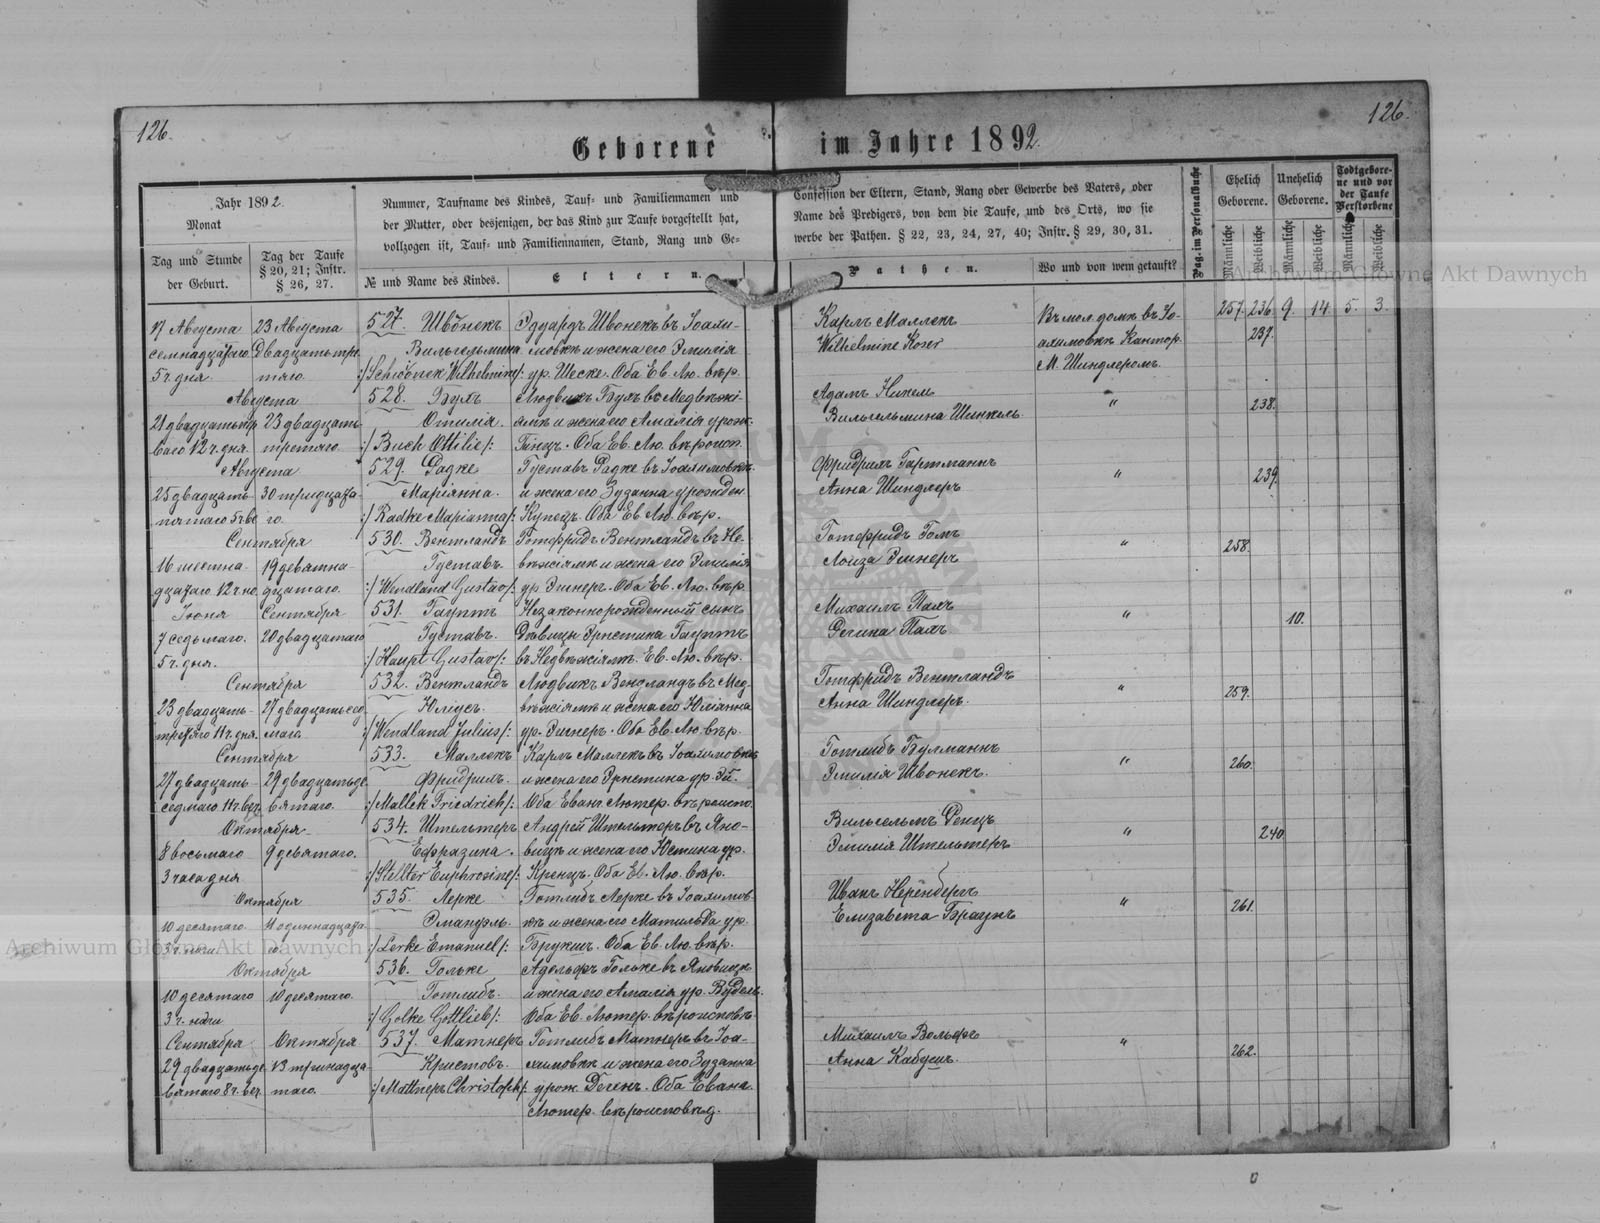 126.
126.
Geborene im Jahre 1892.
Jahr 1892.
Monat
Tag und Stunde
der Geburt.
Tag der Taufe
§ 20, 21; Instr.
§ 26, 27.
Nummer, Taufname des Kindes, Tauf- und Familiennamen und
der Mutter, oder desjenigen, der das Kind zur Taufe vorgestellt hat,
vollzogen ist, Tauf- und Familiennamen, Stand, Rang und Ge-
№ und Name des Kindes.
Eltern.
Confession der Eltern, Stand, Rang oder Gewerbe des Vaters, oder
Name des Predigers, von dem die Taufe, und des Orts, wo sie
werbe der Pathen. § 22, 23, 24, 27, 40; Instr. § 29, 30, 31.
Pathen.
Wo und von wem getauft?
Pag. im Personalbuche
Ehelich
Geborene.
Unehelich
Geborene.
Todtgebore-
ne und vor
der Taufe
Verstorbene
Männliche
Weibliche
Männliche
Weibliche
Männliche
Weibliche
17 Августа 23 Августа 527. Швонекъ Эдуардъ Швонекъ въ Іоахи- Карлъ Маллекъ Въ мол. домѣ въ Іо- 257. 236 9. 14. 5. 3.
семнадцатаго Двадцать тре- Вильгельмина мовкѣ и жена его Эмилія Wilhelmine Koser ахимовкѣ Кантор. 237.
5 ч. дня. тяго. :/Schwonek Wilhelmine/: ур. Шеске. Оба Ев. Лю. вѣр. М. Шиндлеромъ.
Августа 528. Бухъ Людвикъ Бухъ въ Медвѣжі- Адамъ Никель " 238.
21 двадцать пер- 23 двадцать Отилія. ямѣ и жена его Амалія урож. Вильгельмина Шинкель.
ваго 12 ч. дня. третяго. :/Buch Ottilie/: Оба Ев. Лю. вѣроисп.
Августа 529. Радке Густавъ Радке въ Іоахимовкѣ Фридрихъ Гартманнъ " 239.
25 двадцать 30 тридцата- Маріянна. и жена его Зузанна урожден. Анна Шиндлеръ
пятаго 5 ч. ве го. :/Radke Маріanna/: Купецъ. Оба Ев. Лю. вѣр.
Сентября 530. Вентландъ Готфридъ Вентландъ въ Ме- Готфридъ " 258.
16 шестна- 19 девятна- Густавъ. вѣжіямѣ и жена его Эмилія Лоиза Эшнеръ
дцатаго 12 ч. но. дцатаго. :/Wendland Gustav/: ур. Эшнеръ. Оба Ев. Лю. вѣр.
Іюня Сентября 531. Гауптъ Незаконнорожденный сынъ Михаилъ Палъ " 10.
7 седьмаго. 20 двадцатаго Густавъ. Дѣвицы Эрнестина Гауптъ Регина Палъ.
5 ч. дня. :/Haupt Gustav/: въ Медвѣжіямѣ. Ев. Лю. вѣр.
Сентября 532. Вентландъ Людвикъ Вендландъ въ Мед- Готфридъ Вентландъ " 259.
23 двадцать- 27 двадцать сед- Юліусъ. вѣжіямѣ и жена его Юліанна Анна Шиндлеръ.
третяго 11 ч. дня. маго. :/Wendland Julius/: ур. Эшнеръ. Оба Ев. Лю. вѣр.
Сентября 533. Маллекъ Карлъ Маллекъ въ Іоахимовкѣ Готлибъ Бульманнъ " 260.
27 двадцать 29 двадцать де- Фридрихъ. и жена его Эрнестина ур. Эй. Эмилія Швонекъ.
седмаго 11 ч. веч. вятаго. :/Mallek Friedrich/: Оба Еванг. Лютер. вѣроиспо.
Октября 534. Штельтеръ Андрей Штельтеръ въ Яно- Вильгельмъ Ренцъ " 240
8 восьмаго 9 девятаго. Ефрозина. вицѣ и жена его Юстина ур. Эмилія Штельтеръ
3 часа дня :/Stelter Euphrosine/: Кренцъ. Оба Ев. Лю. вѣр.
Октября 535. Лерке Готлибъ Лерке въ Іоахимов- Иванъ Неренбергъ " 261.
10 десятаго 11 одиннадцата- Эмануэль. кѣ и жена его Матильда ур. Елизавета Браунъ
3 ч. ночи го :/Lerke Emanuel/: Брукшъ. Оба Ев. Лю. вѣр.
Октября 536. Гольке Адольфъ Гольке въ Яновицѣ
10 десятаго 10 десятаго. Готлибъ. и жена его Амалія ур. Будель.
3 ч. ночи :/Golke Gottlieb/: Оба Ев. Лютер. вѣроисповѣ.
Сентября Октября 537. Матнеръ Готлибъ Матнеръ въ Іоа- Михаилъ Вольфе " 262.
29 двадцать де- 13 тринадца- Христовъ. химовкѣ и жена его Зузанна Анна Кабушъ.
вятаго 8 ч. веч. таго. :/Mattner Christoph/: урож. Дегенъ. Оба Еванг.
Лютер. вѣроисповѣд.
Archiwum Główne Akt Dawnych
Archiwum Główne Akt Dawnych